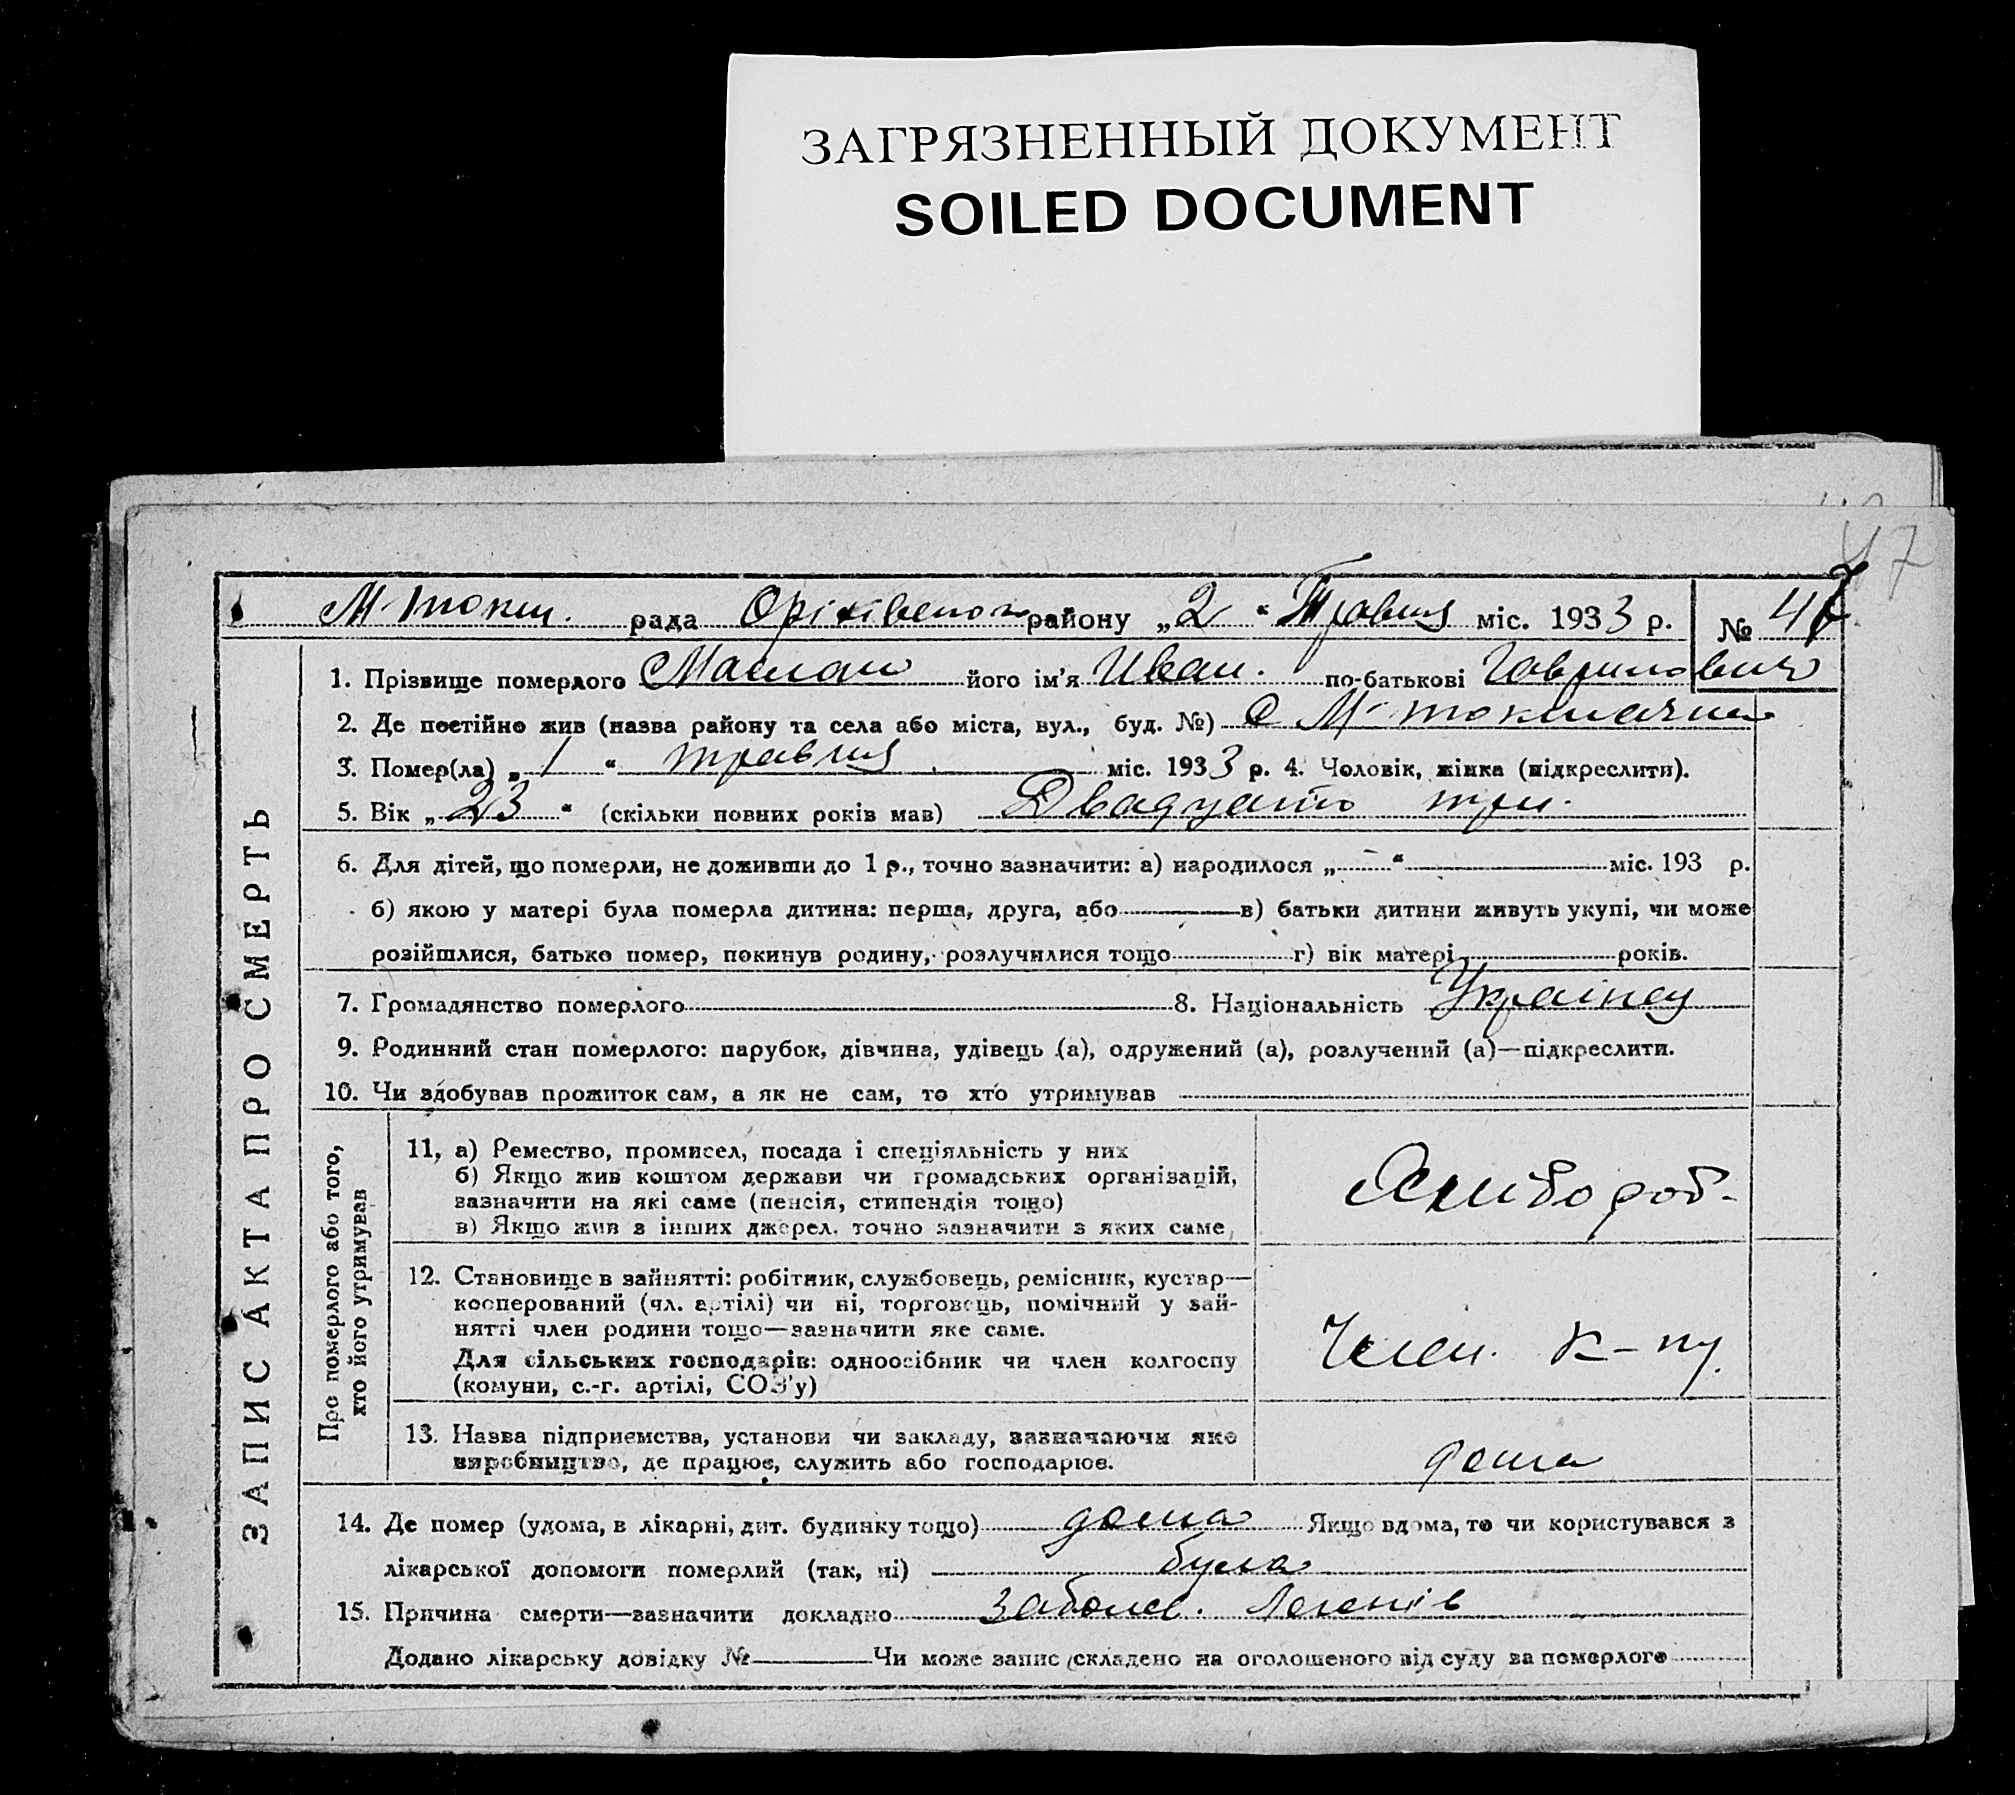 ЗАГРЯЗНЕННЫЙ ДОКУМЕНТ
SOILED DOCUMENT
47
М-токм. рада Оріхівського району „2“ Травня міс. 1933 р. № 47
ЗАПИС АКТА ПРО СМЕРТЬ
1. Прізвище померлого Маслан його ім'я Иван. по-батькові Гаврилович
2. Де постійно жив (назва району та села або міста, вул., буд. №) С М-токмачка
3. Помер(ла) „1“ травня міс. 1933 р. 4. Чоловік, жінка (підкреслити).
5. Вік „23“ (скільки повних років мав) Двадцать три.
6. Для дітей, що померли, не доживши до 1 р., точно зазначити: а) народилося „ “ міс. 193 р.
б) якою у матері була померла дитина: перша, друга, або в) батьки дитини живуть укупі, чи може
розійшлися, батько помер, покинув родину, розлучилися тощо г) вік матері років.
7. Громадянство померлого 8. Національність Українец
9. Родинний стан померлого: парубок, дівчина, удівець (а), одружений (а), розлучений (а)—підкреслити.
10. Чи здобував прожиток сам, а як не сам, то хто утримував
Про померлого або того,
хто його утримував
11, а) Ремество, промисел, посада і спеціяльність у них
б) Якщо жив коштом держави чи громадських організацій,
зазначити на які саме (пенсія, стипендія тощо)
в) Якщо жив з інших джерел, точно зазначити з яких саме
Хлибороб-
12. Становище в зайнятті: робітник, службовець, ремісник, кустар—
кооперований (чл. артілі) чи ні, торговець, помічний у зай-
нятті член родини тощо—зазначити яке саме.
Для сільських господарів: одноосібник чи член колгоспу
(комуни, с.-г. артілі, СОЗ'у)
Член. К-пу.
13. Назва підприємства, установи чи закладу, зазначаючи яке
виробництво, де працює, служить або господарює.
дома
14. Де помер (удома, в лікарні, дит. будинку тощо) дома Якщо вдома, то чи користувався з
лікарської допомоги померлий (так, ні) була
15. Причина смерти—зазначити докладно Заболев. Легенів
Додано лікарську довідку № Чи може запис складено на оголошеного від суду за померлого